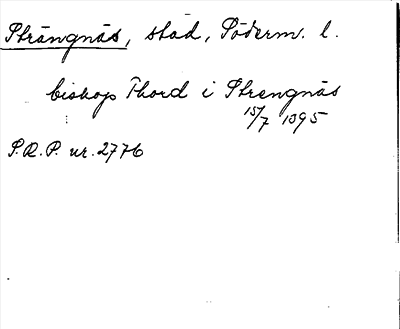 Strängnäs, stad, Söderm. l.
biskop Thord i Strengnäs
15/7 1395
S.R.P. nr. 2776